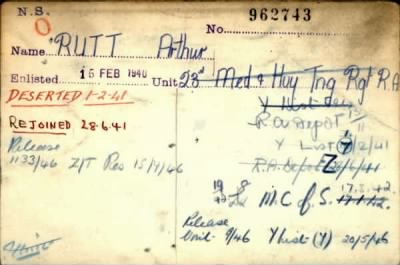 N.S.
O
No. 962743
Name RUTT Arthur
Enlisted 15 FEB 1940 Unit 28th Med & Hvy Tng Rgt R.A
DESERTED 1-2-41
Y List
REJOINED 28.6.41
R.A. Depot
Y List (Y) 2/41
Release
1133/46 Z/T Res 15/9/46
R.A. Depot 28/6/41
Z
17.8.42.
M.C of S. 17.1.42.
Release
Unit 9/46 Y list (Y) 20/5/46